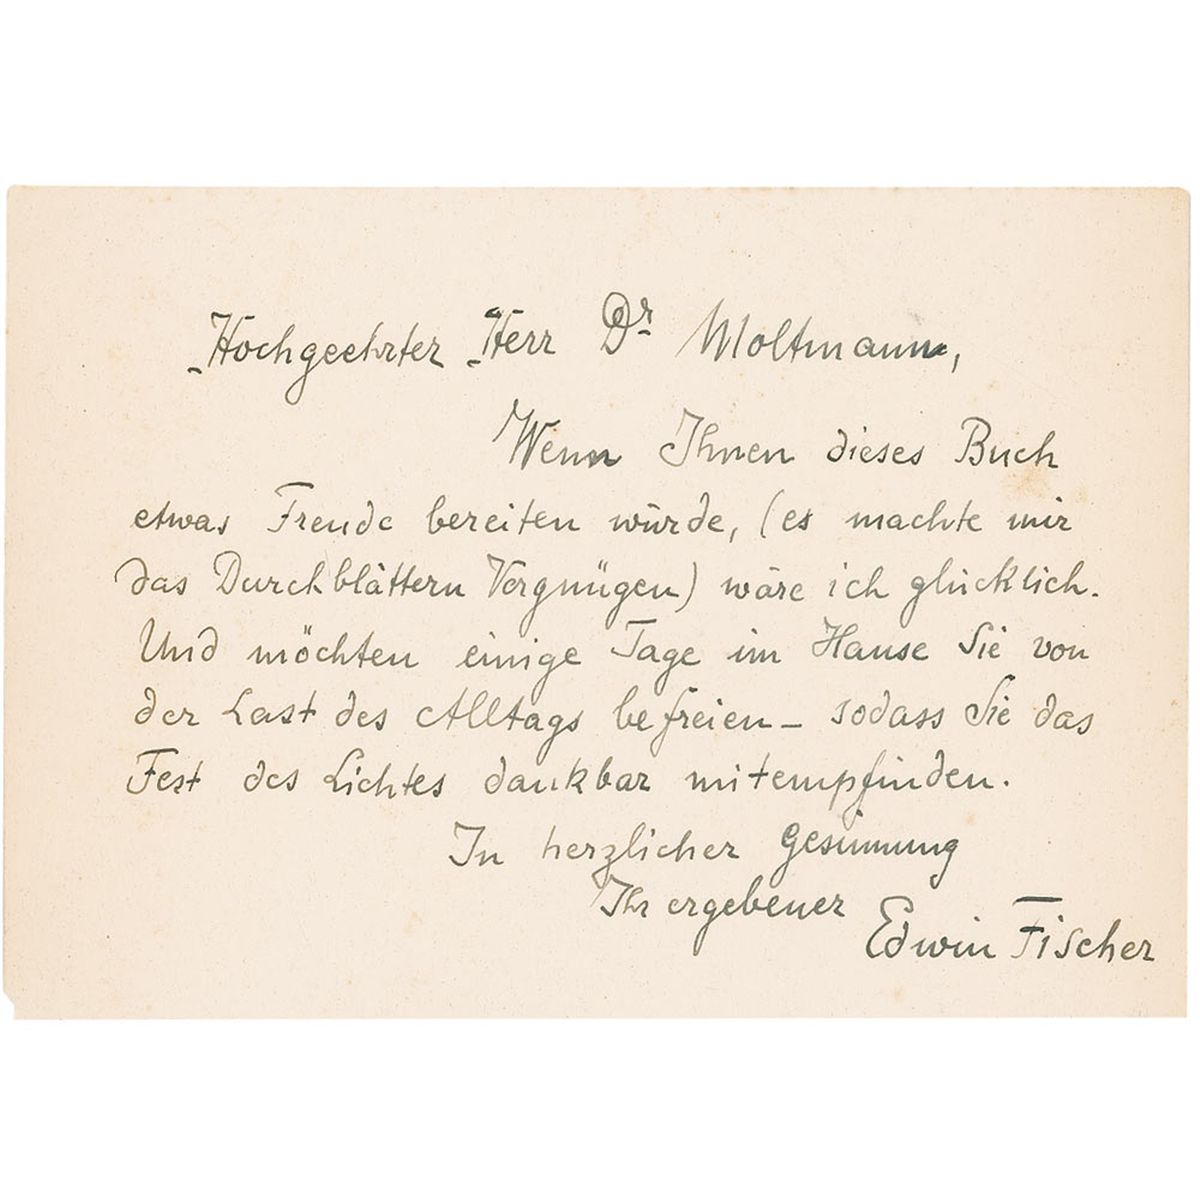 Hochgeehrter Herr Dr Moltmann,
Wenn Ihnen dieses Buch
etwas Freude bereiten würde, (es machte mir
das Durchblättern Vergnügen) wäre ich glücklich.
Und möchten einige Tage im Hause Sie von
der Last des Alltags befreien – sodass Sie das
Fest des Lichtes dankbar mitempfinden.
In herzlicher Gesinnung
Ihr ergebener
Edwin Fischer